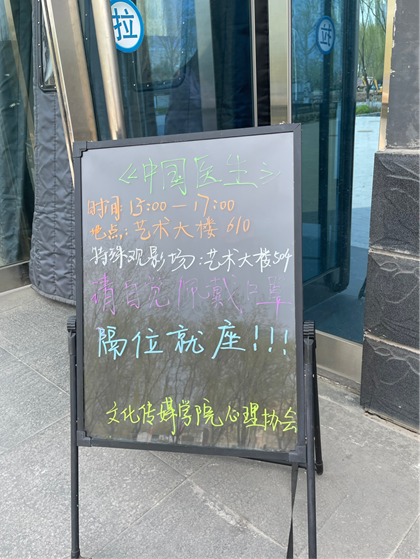 拉
拉
《中国医生》
时间 15:00—17:00
地点:艺术大楼 610
特殊观影场:艺术大楼504
请百 戴口罩
隔位就座!!!
文化传媒学院心理协会